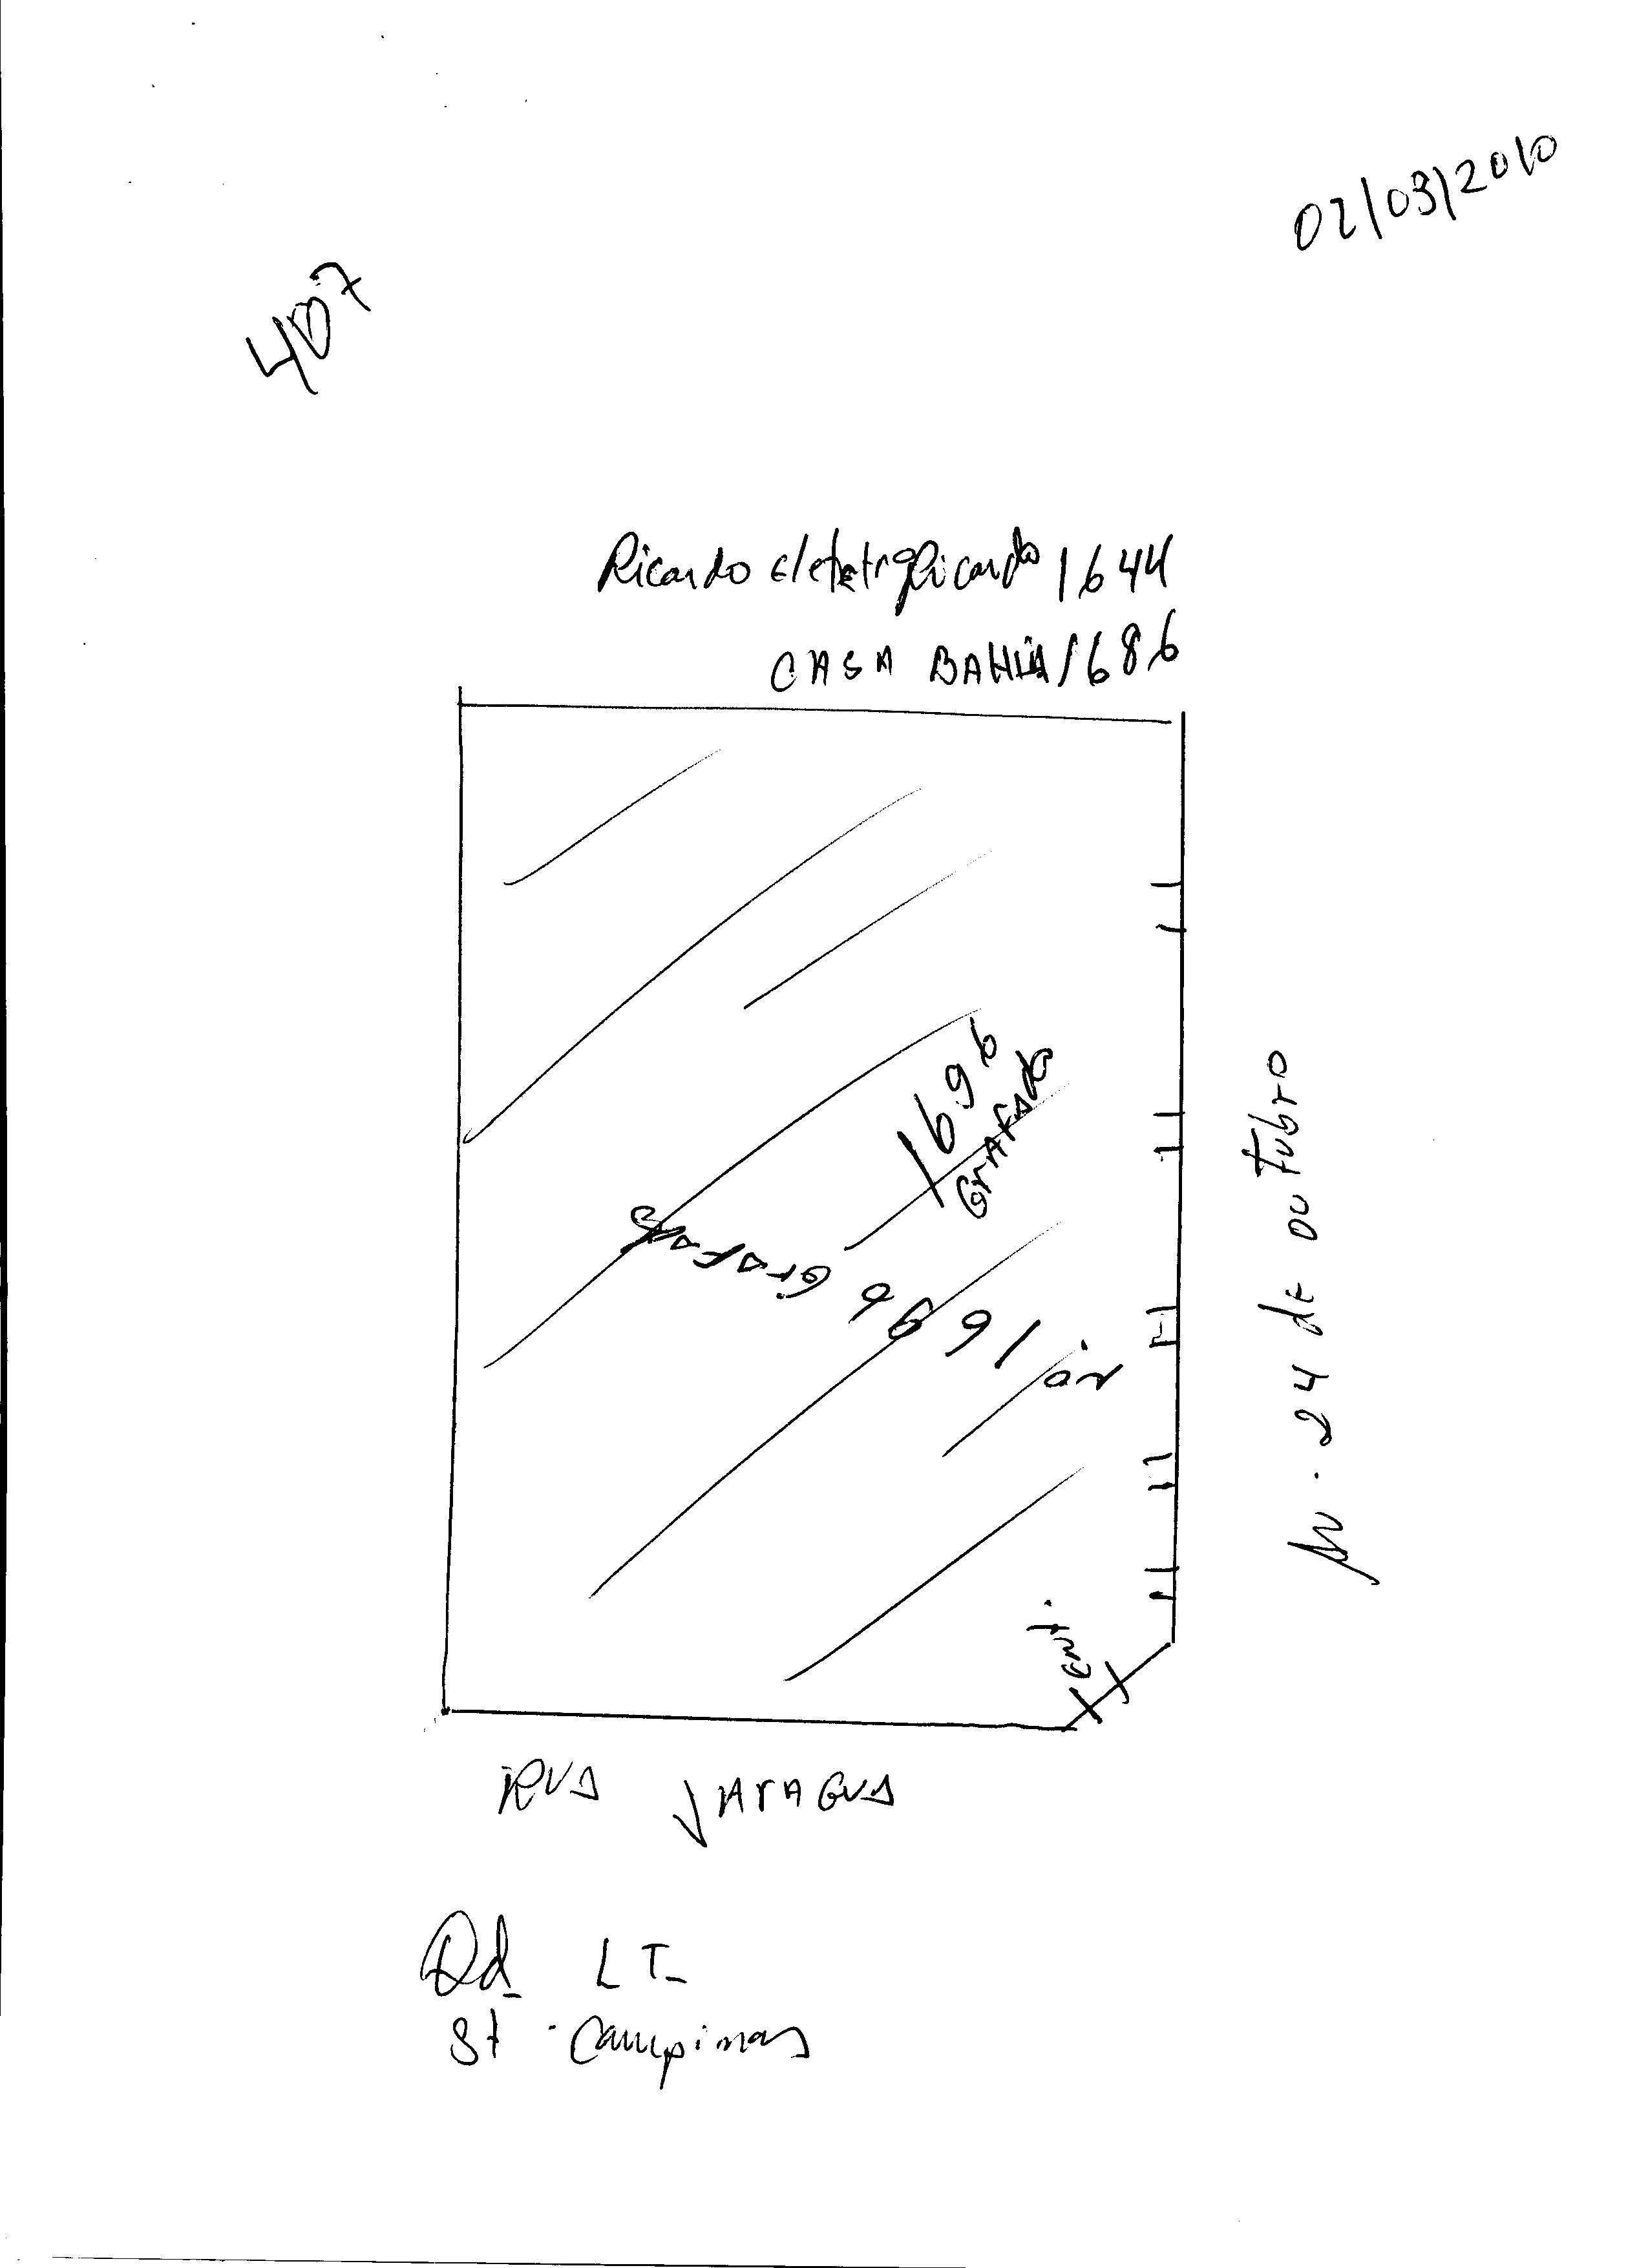 02/03/2010
407
Ricardo eletetroRicardo 1644
CASA BAHIA 1686
1696
GrAFAda
nº 1696 GrAFAda
Av. 24 de outubro
ent.
RUA JArAGUA
Qd_ LT_
St. Campinas